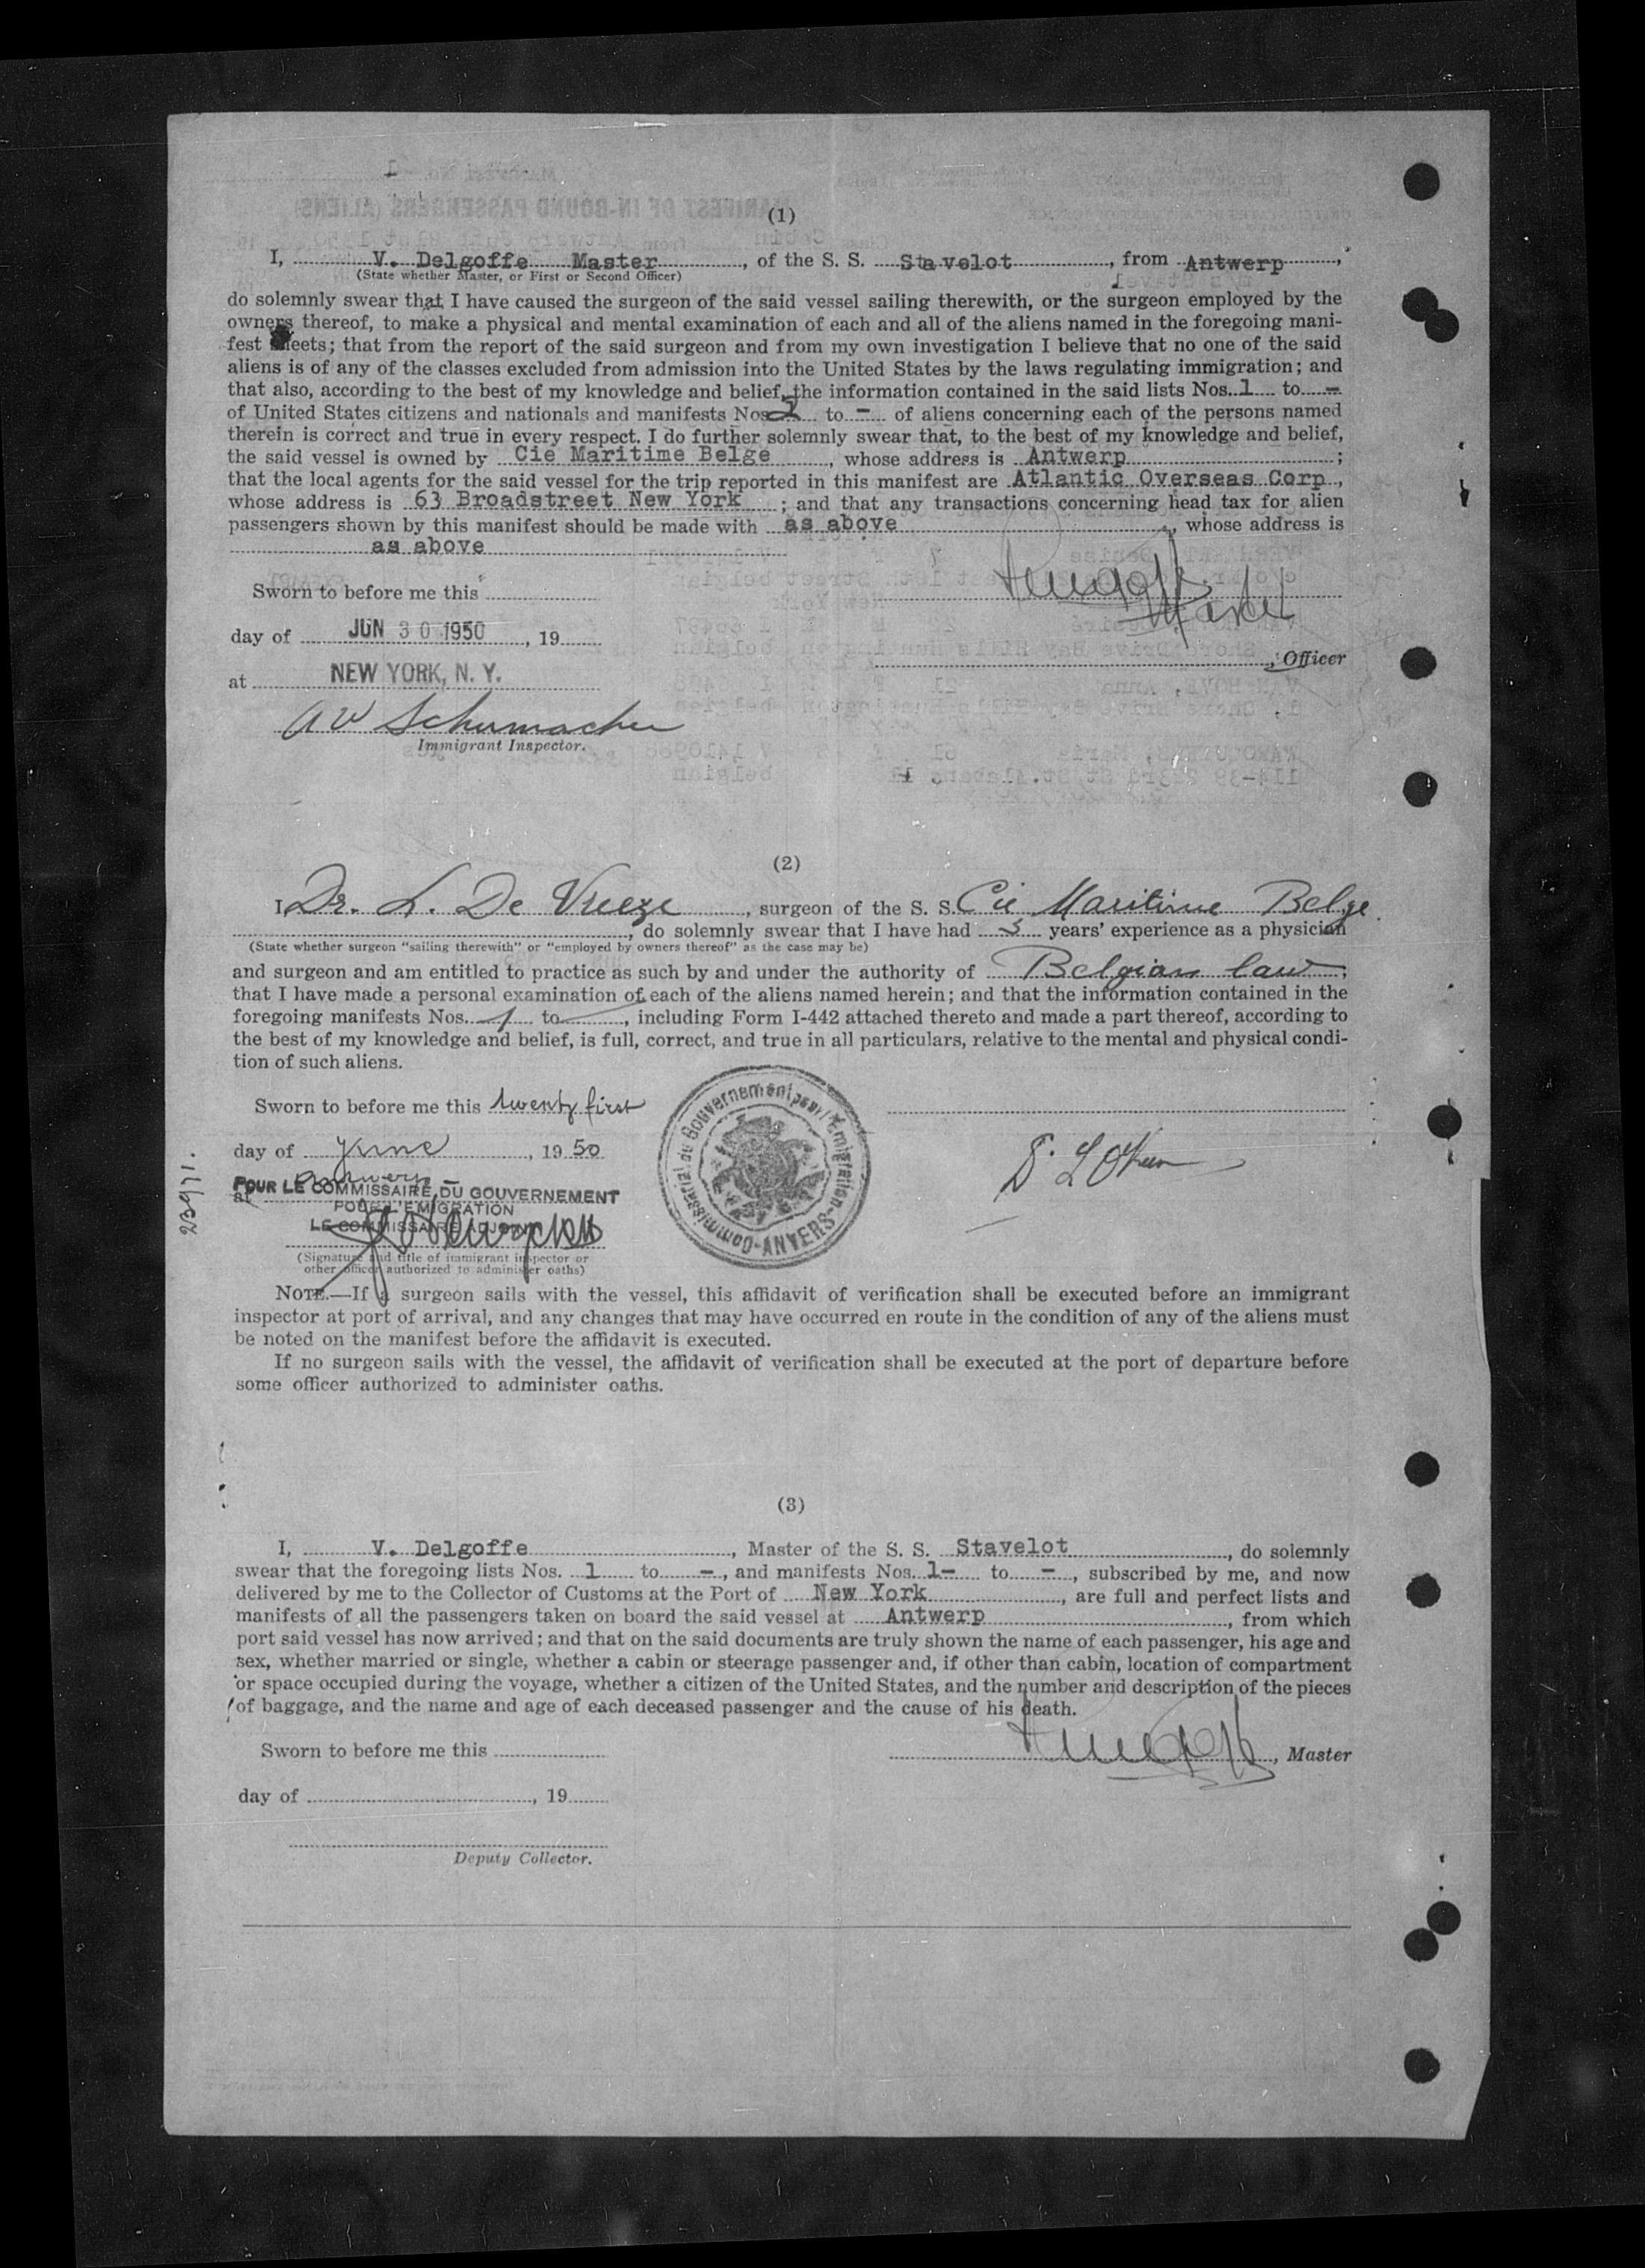 (1)
I, V. Delgoffe Master, of the S. S. Stavelot, from Antwerp,
(State whether Master, or First or Second Officer)
do solemnly swear that I have caused the surgeon of the said vessel sailing therewith, or the surgeon employed by the
owners thereof, to make a physical and mental examination of each and all of the aliens named in the foregoing mani-
fest sheets; that from the report of the said surgeon and from my own investigation I believe that no one of the said
aliens is of any of the classes excluded from admission into the United States by the laws regulating immigration; and
that also, according to the best of my knowledge and belief, the information contained in the said lists Nos. 1 to -
of United States citizens and nationals and manifests Nos. to - of aliens concerning each of the persons named
therein is correct and true in every respect. I do further solemnly swear that, to the best of my knowledge and belief,
the said vessel is owned by Cie Maritime Belge, whose address is Antwerp;
that the local agents for the said vessel for the trip reported in this manifest are Atlantic Overseas Corp,
whose address is 63 Broadstreet New York; and that any transactions concerning head tax for alien
passengers shown by this manifest should be made with as above, whose address is
as above
Sworn to before me this
Master
day of JUN 30 1950, 19
, Officer
at NEW YORK, N. Y.
A W Schumacher
Immigrant Inspector.
(2)
I, Dr. L. De Vreeze, surgeon of the S. S. Cie Maritime Belge
, do solemnly swear that I have had years' experience as a physician
(State whether surgeon "sailing therewith" or "employed by owners thereof" as the case may be)
and surgeon and am entitled to practice as such by and under the authority of Belgian law;
that I have made a personal examination of each of the aliens named herein; and that the information contained in the
foregoing manifests Nos. 1 to, including Form I-442 attached thereto and made a part thereof, according to
the best of my knowledge and belief, is full, correct, and true in all particulars, relative to the mental and physical condi-
tion of such aliens.
Sworn to before me this twenty first
day of June, 1950
at Antwerp
POUR LE COMMISSAIRE DU GOUVERNEMENT
POUR L'EMIGRATION
LE COMMISSAIRE ADJOINT
Commissariat du Gouvernement pour l'Emigration
-ANVERS-
(Signature and title of immigrant inspector or
other officer authorized to administer oaths)
239/11.
NOTE.—If a surgeon sails with the vessel, this affidavit of verification shall be executed before an immigrant
inspector at port of arrival, and any changes that may have occurred en route in the condition of any of the aliens must
be noted on the manifest before the affidavit is executed.
If no surgeon sails with the vessel, the affidavit of verification shall be executed at the port of departure before
some officer authorized to administer oaths.
(3)
I, V. Delgoffe, Master of the S. S. Stavelot, do solemnly
swear that the foregoing lists Nos. 1 to -, and manifests Nos. 1- to -, subscribed by me, and now
delivered by me to the Collector of Customs at the Port of New York, are full and perfect lists and
manifests of all the passengers taken on board the said vessel at Antwerp, from which
port said vessel has now arrived; and that on the said documents are truly shown the name of each passenger, his age and
sex, whether married or single, whether a cabin or steerage passenger and, if other than cabin, location of compartment
or space occupied during the voyage, whether a citizen of the United States, and the number and description of the pieces
of baggage, and the name and age of each deceased passenger and the cause of his death.
Sworn to before me this
, Master
day of, 19
Deputy Collector.